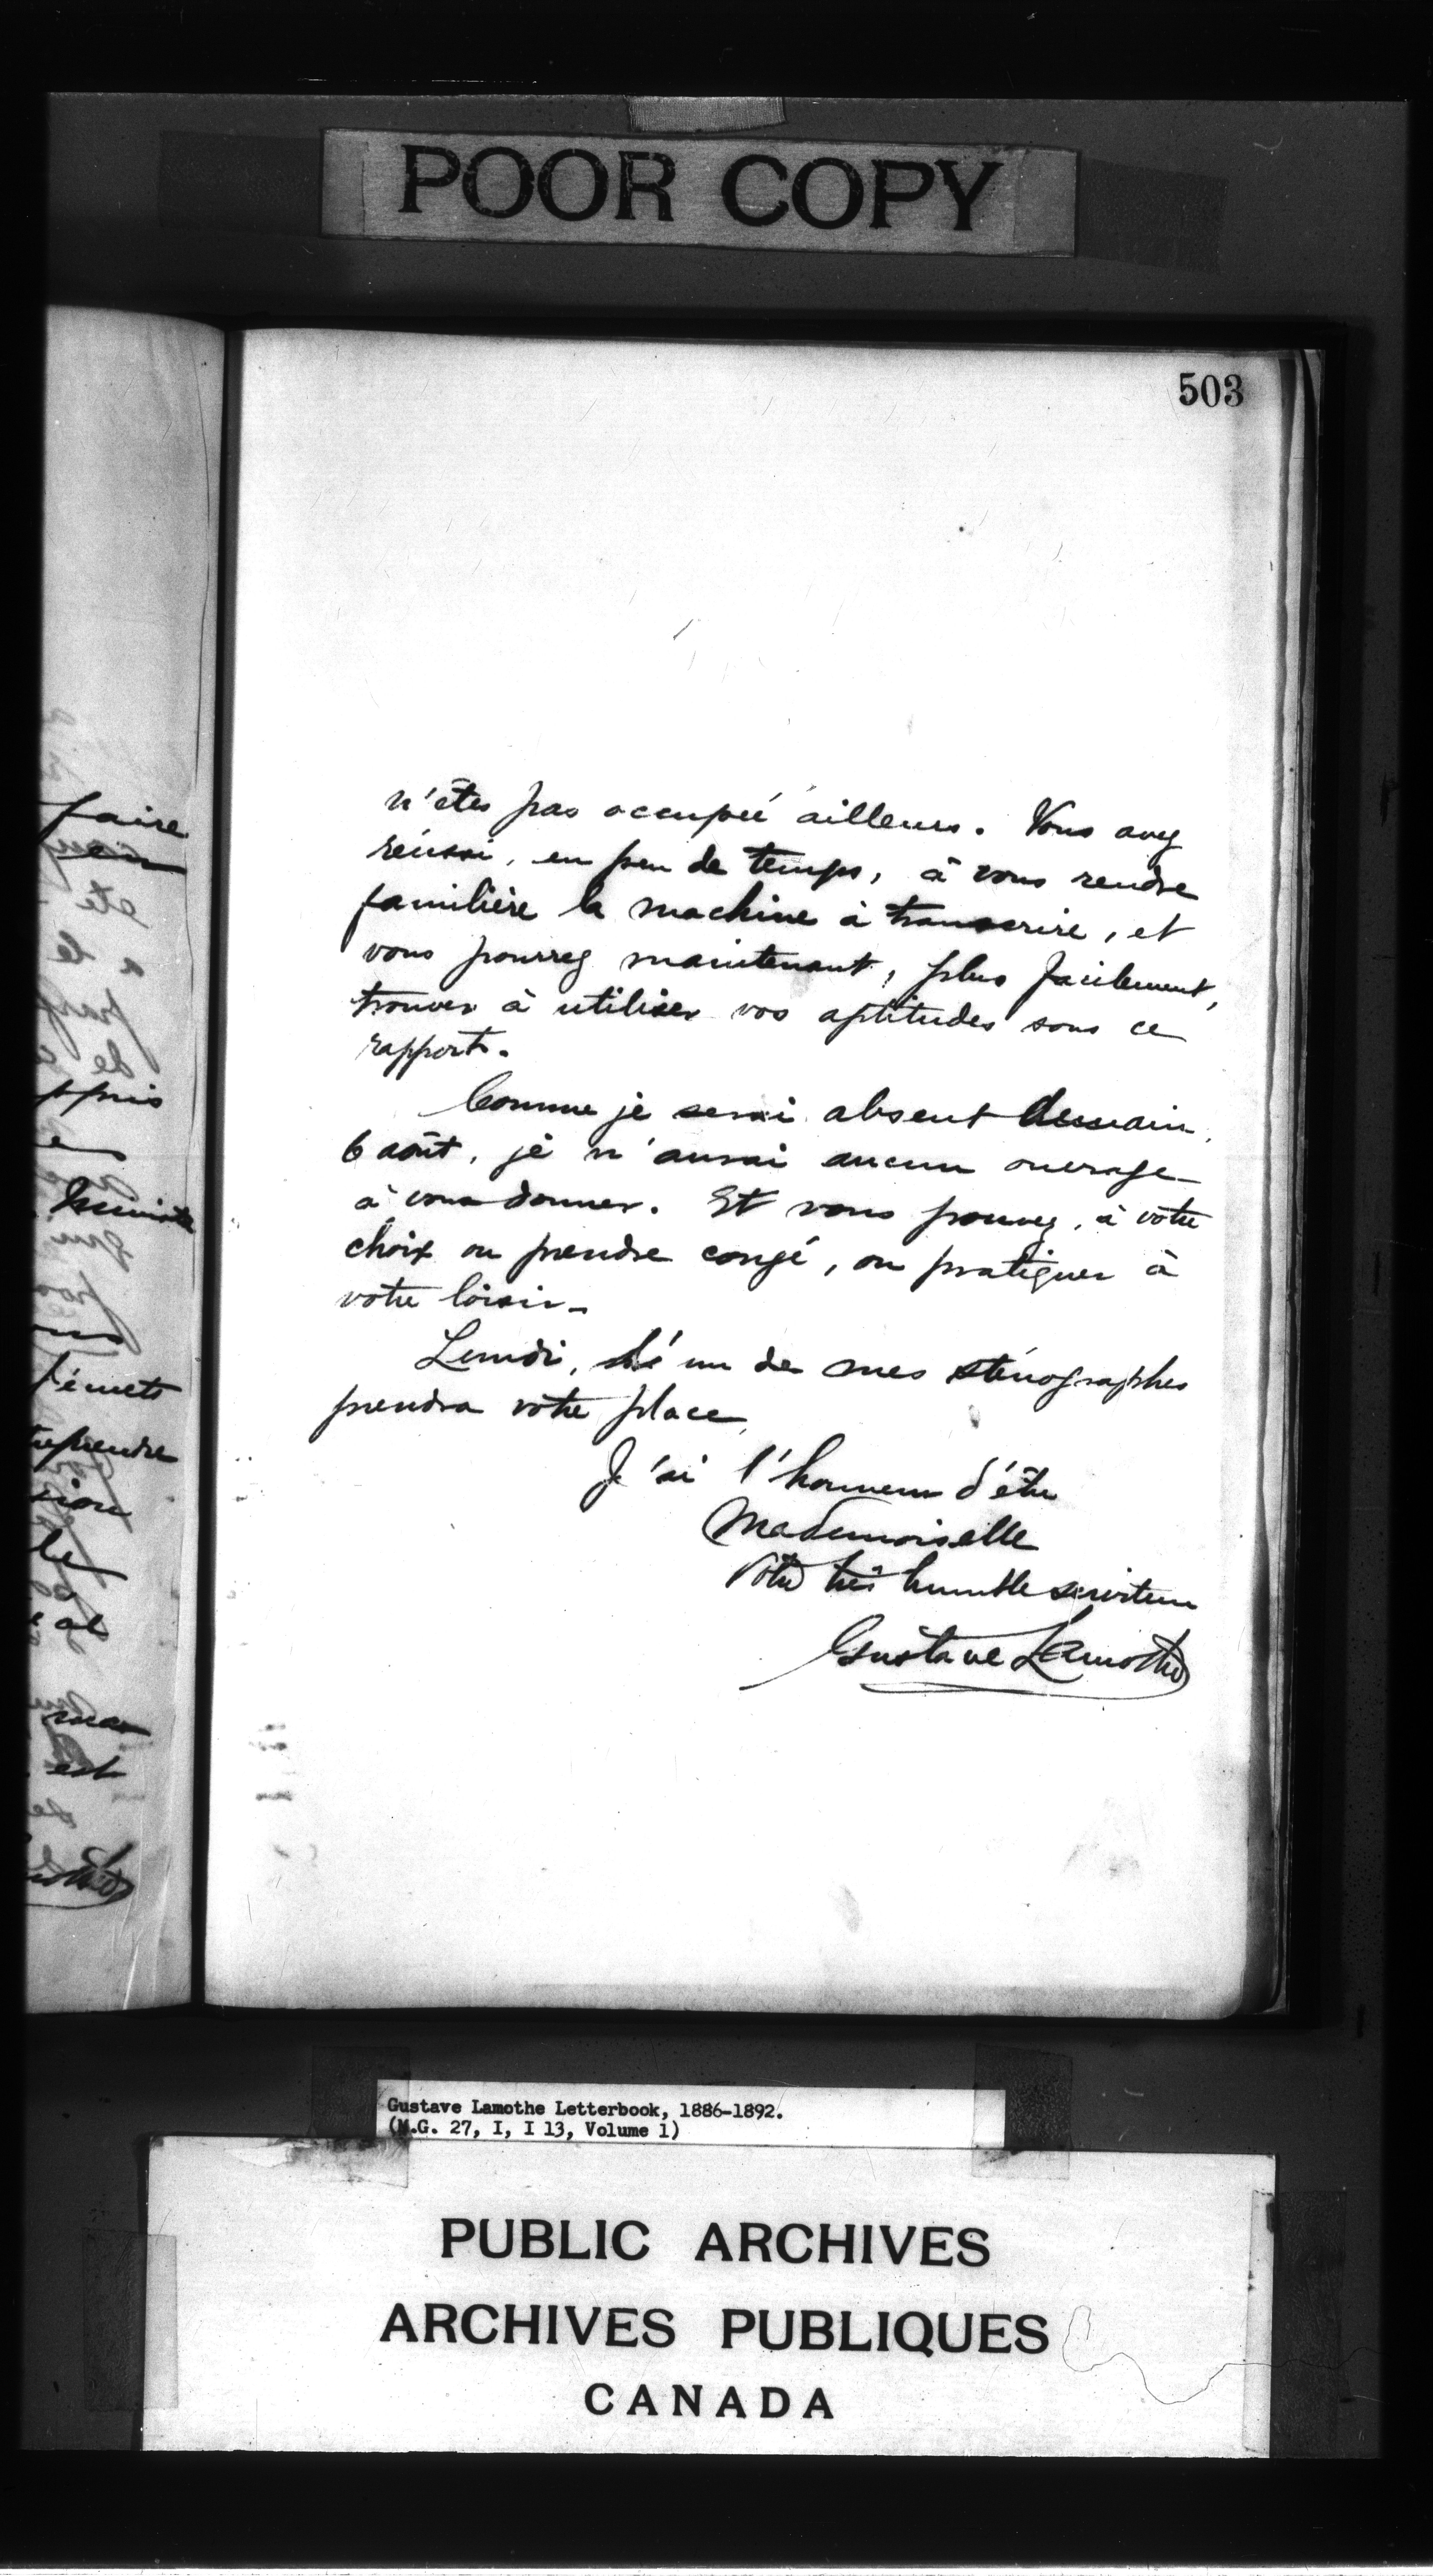 POOR COPY
503
faire
en
n'êtes pas occupée ailleurs. Vous avez
réussi, en peu de temps, à vous rendre
familière la machine à transcrire, et
vous pourrez maintenant, plus facilement,
trouver à utiliser vos aptitudes sous ce
rapport.
Comme je serai absent demain,
6 août, je n'aurai aucun ouvrage
à vous donner. Et vous pouvez, à votre
choix ou prendre congé, ou pratiquer à
votre loisir.
Lundi, un de mes sténographes
prendra votre place,
J'ai l'honneur d'être
Mademoiselle
Votre très humble serviteur
Gustave Lamothe
Gustave Lamothe Letterbook, 1886-1892.
(M.G. 27, I, I 13, Volume 1)
PUBLIC ARCHIVES
ARCHIVES PUBLIQUES
CANADA